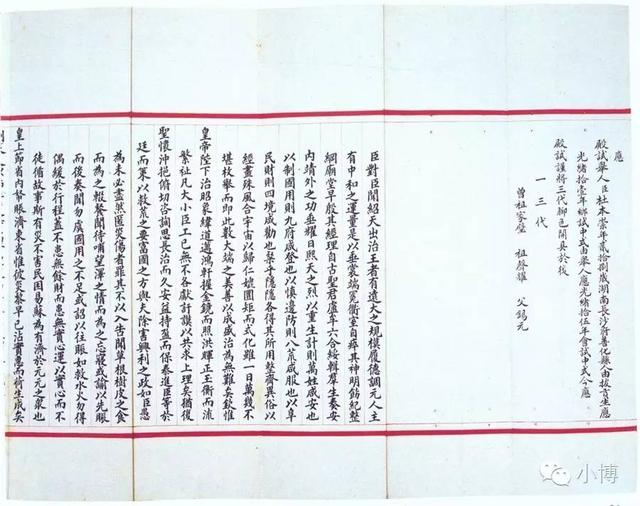 應
殿試舉人臣杜本崇年貳拾捌歲湖南長沙府善化縣人由拔貢生應
光緒拾壹年鄉試中式由舉人應光緒拾伍年會試中式今應
殿試謹將三代腳色開具於後
一三代
曾祖家 祖聲 父錫元
臣對臣聞紹天出治王者有遠大之規模履德調元人主
有中和之運量是以垂裳端冕衢室自瘁其神明飭紀整
綱廟堂早殷其經理自古聖君廬牟六合綏輯羣生奏安
內靖外之功垂耀日照天之烈以重生計則萬姓咸安也
以制國用則九府咸登也以慎邊防則八荒咸服也以阜
民財則四境咸勸也粲乎隱隱各得其所用整齊異俗以
經畫殊風合宇宙以歸仁嬔圜矩而式化雖一日萬幾不
堪枚舉而即此數大端之美善以成盛治為無難矣欽惟
皇帝陛下治昭景緯道邁鴻軒握金鏡而照洪輝正玉衡而流
繁祉凡大小臣工已無不各獻訏謨以共求上理矣猶復
聖懷沖挹俯切咨詢思長治而久安益持盈而保泰進臣等於
廷而策以救荒之要富國之方與夫除害興利之政如臣愚
為未必盡然匿災傷者罪其不以入告聞草根樹皮之食
而為之輟餐聞待哺望澤之情而為之忘寢或諭以先賑
而後奏聞勿廣國用之不足或詔以往賑如救水火勿得
偶緩於行程蓋不患無餘財而患無實心運以實心而不
徒循故事斯有災不害民困易蘇為有濟於元元之衆也
皇上節省內帑賑濟東省惟彼災黎早已沾實惠而荷生成矣
小博